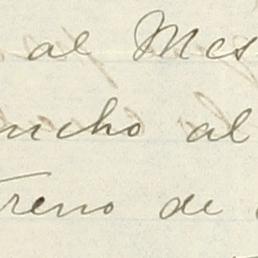 al Mes
ncho al
treno de